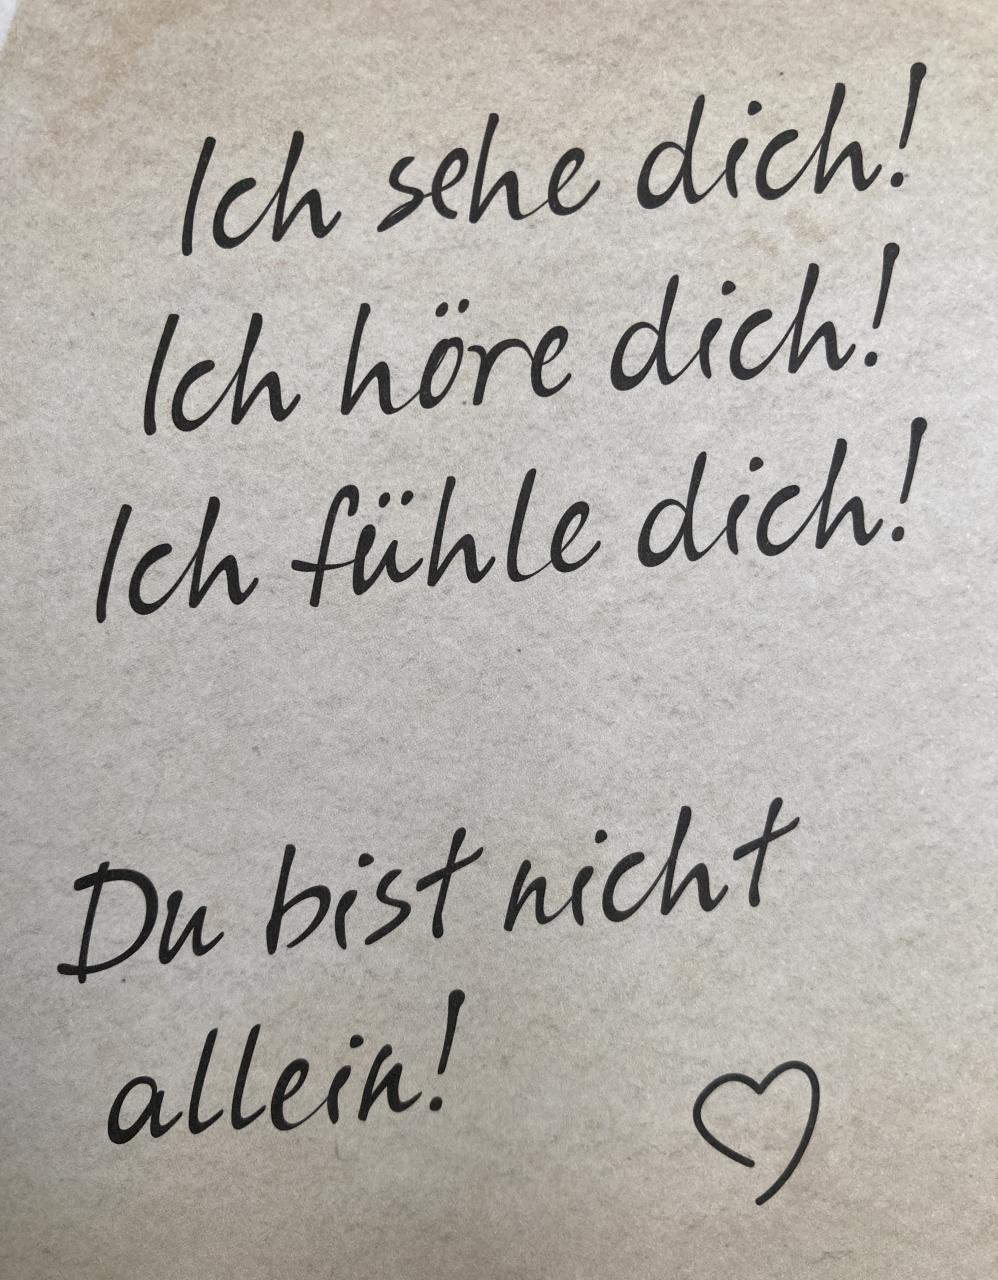 Ich sehe dich!
Ich höre dich!
Ich fühle dich!
Du bist nicht
allein!